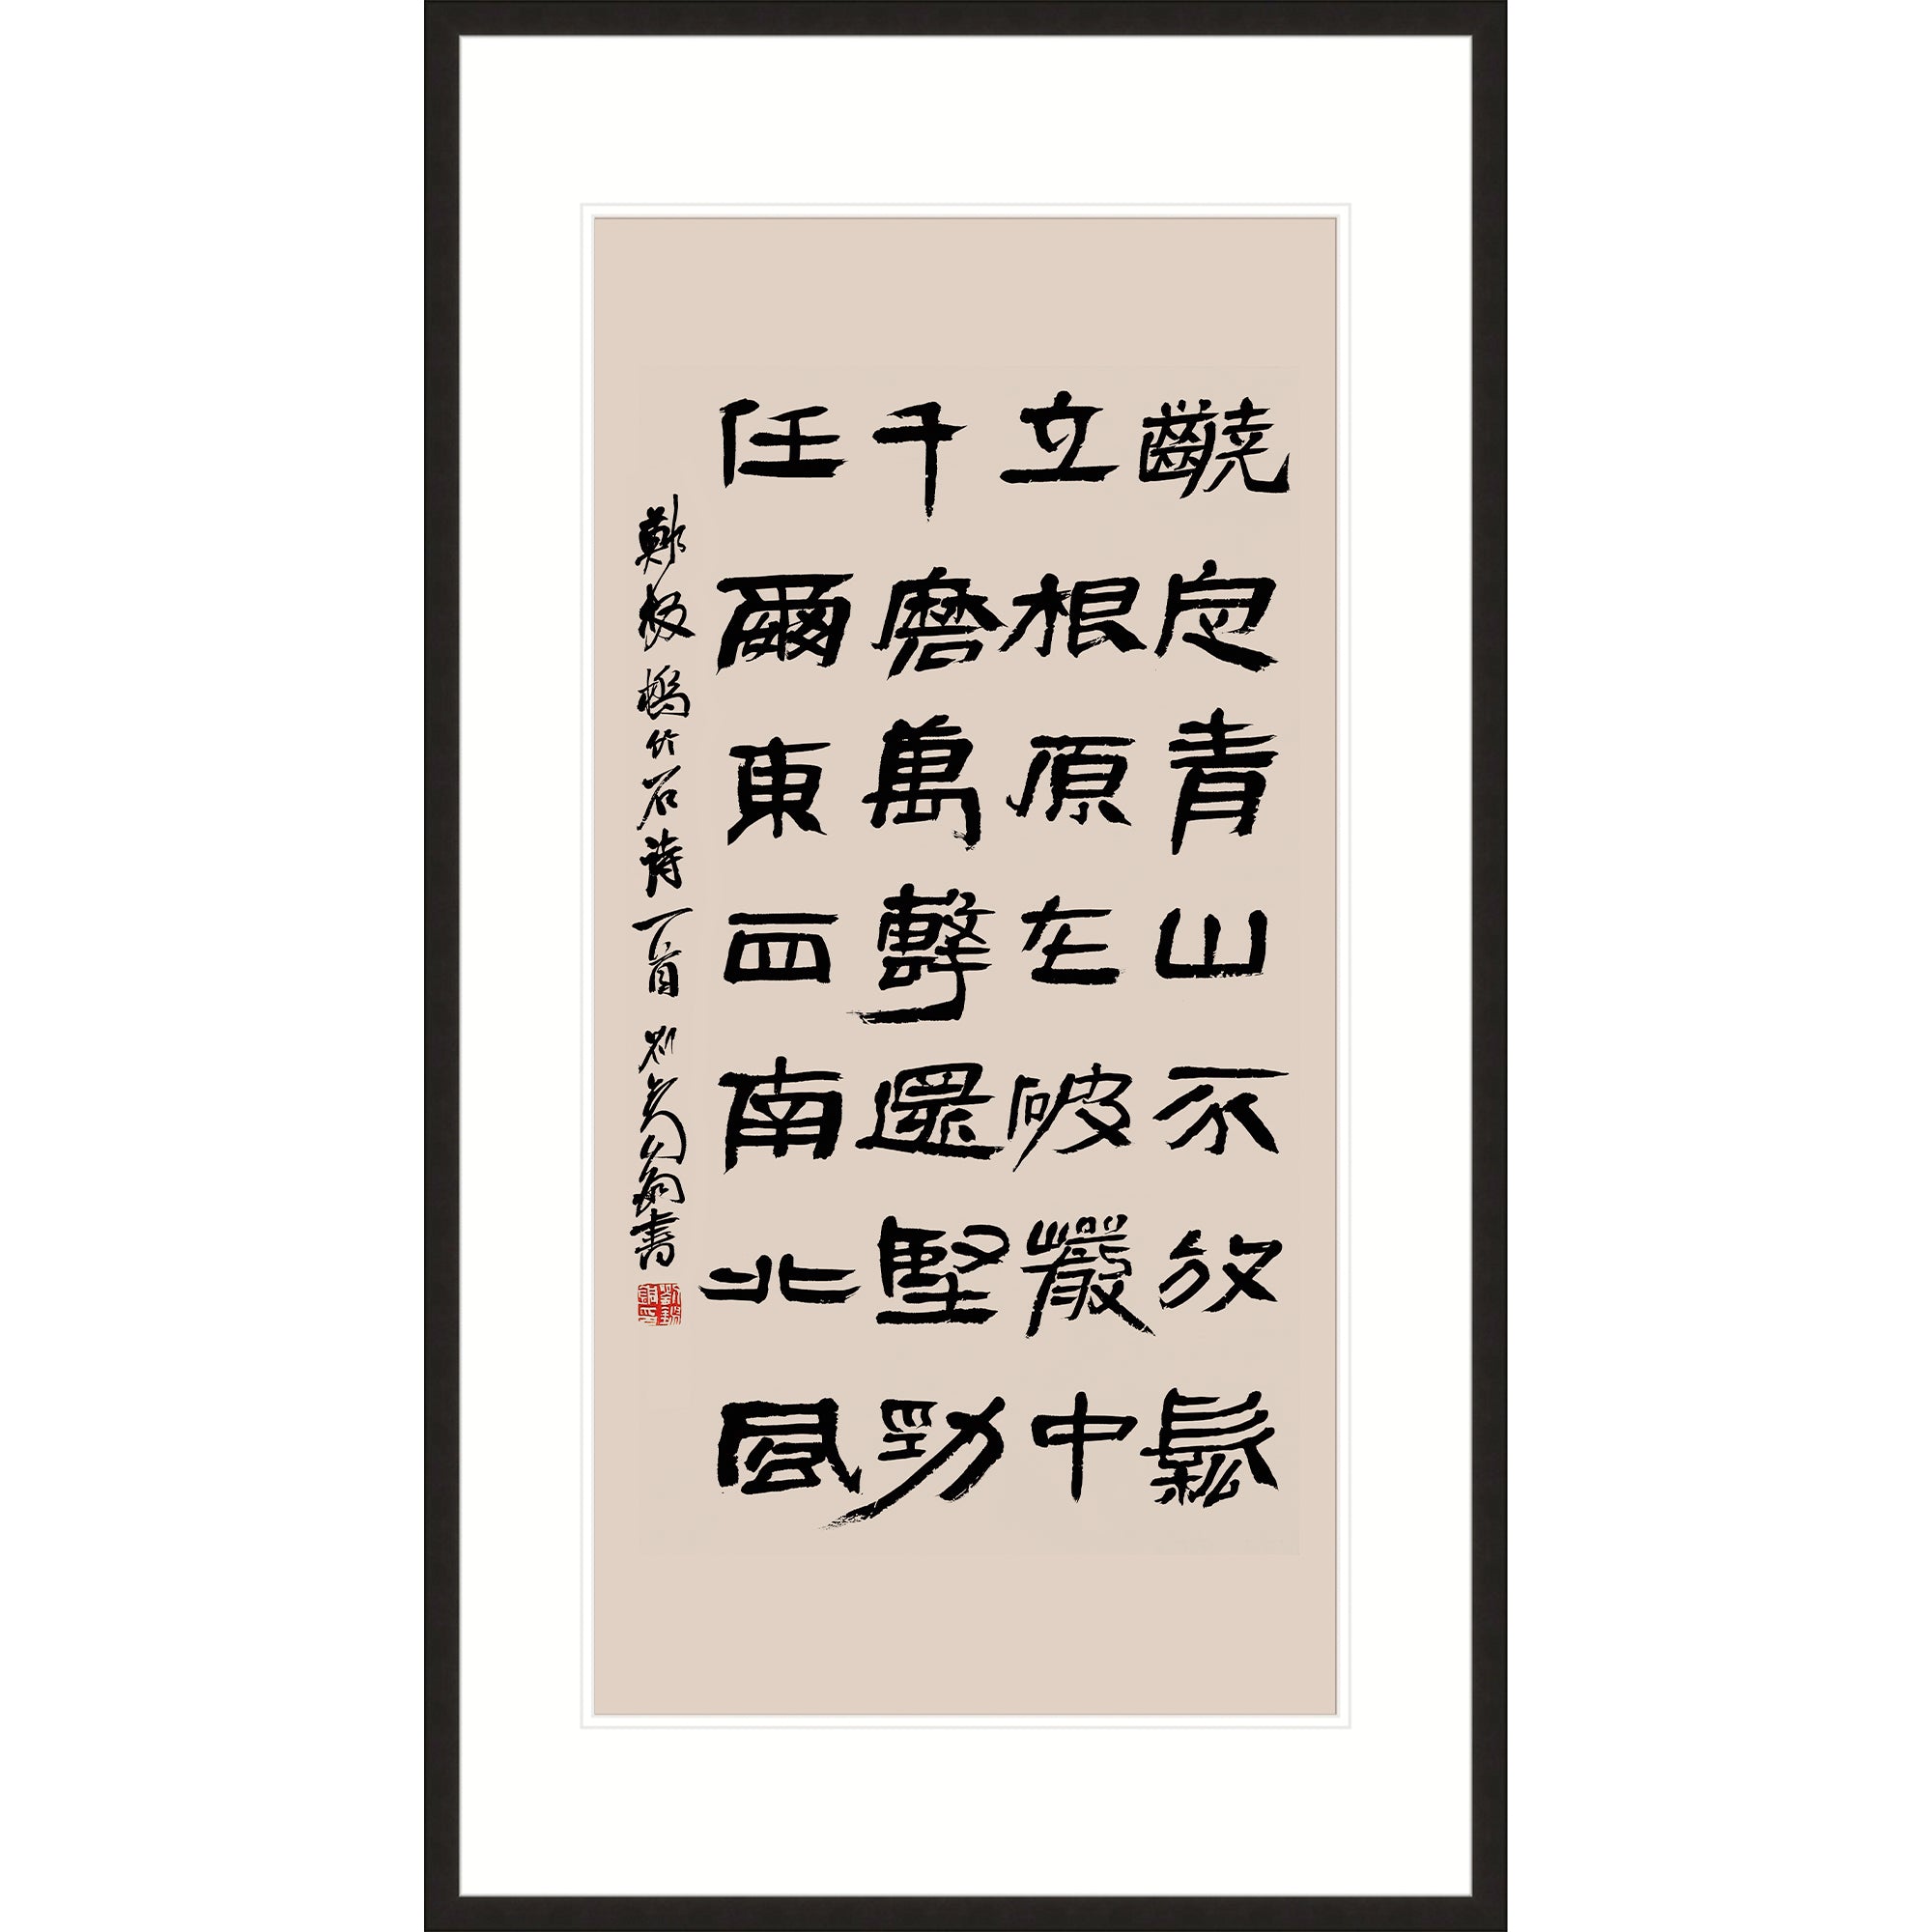 定青山不放鬆
立根原在破巖中
千磨萬擊還堅勁
任爾東西南北風
鄭板橋竹石詩一首 刘書